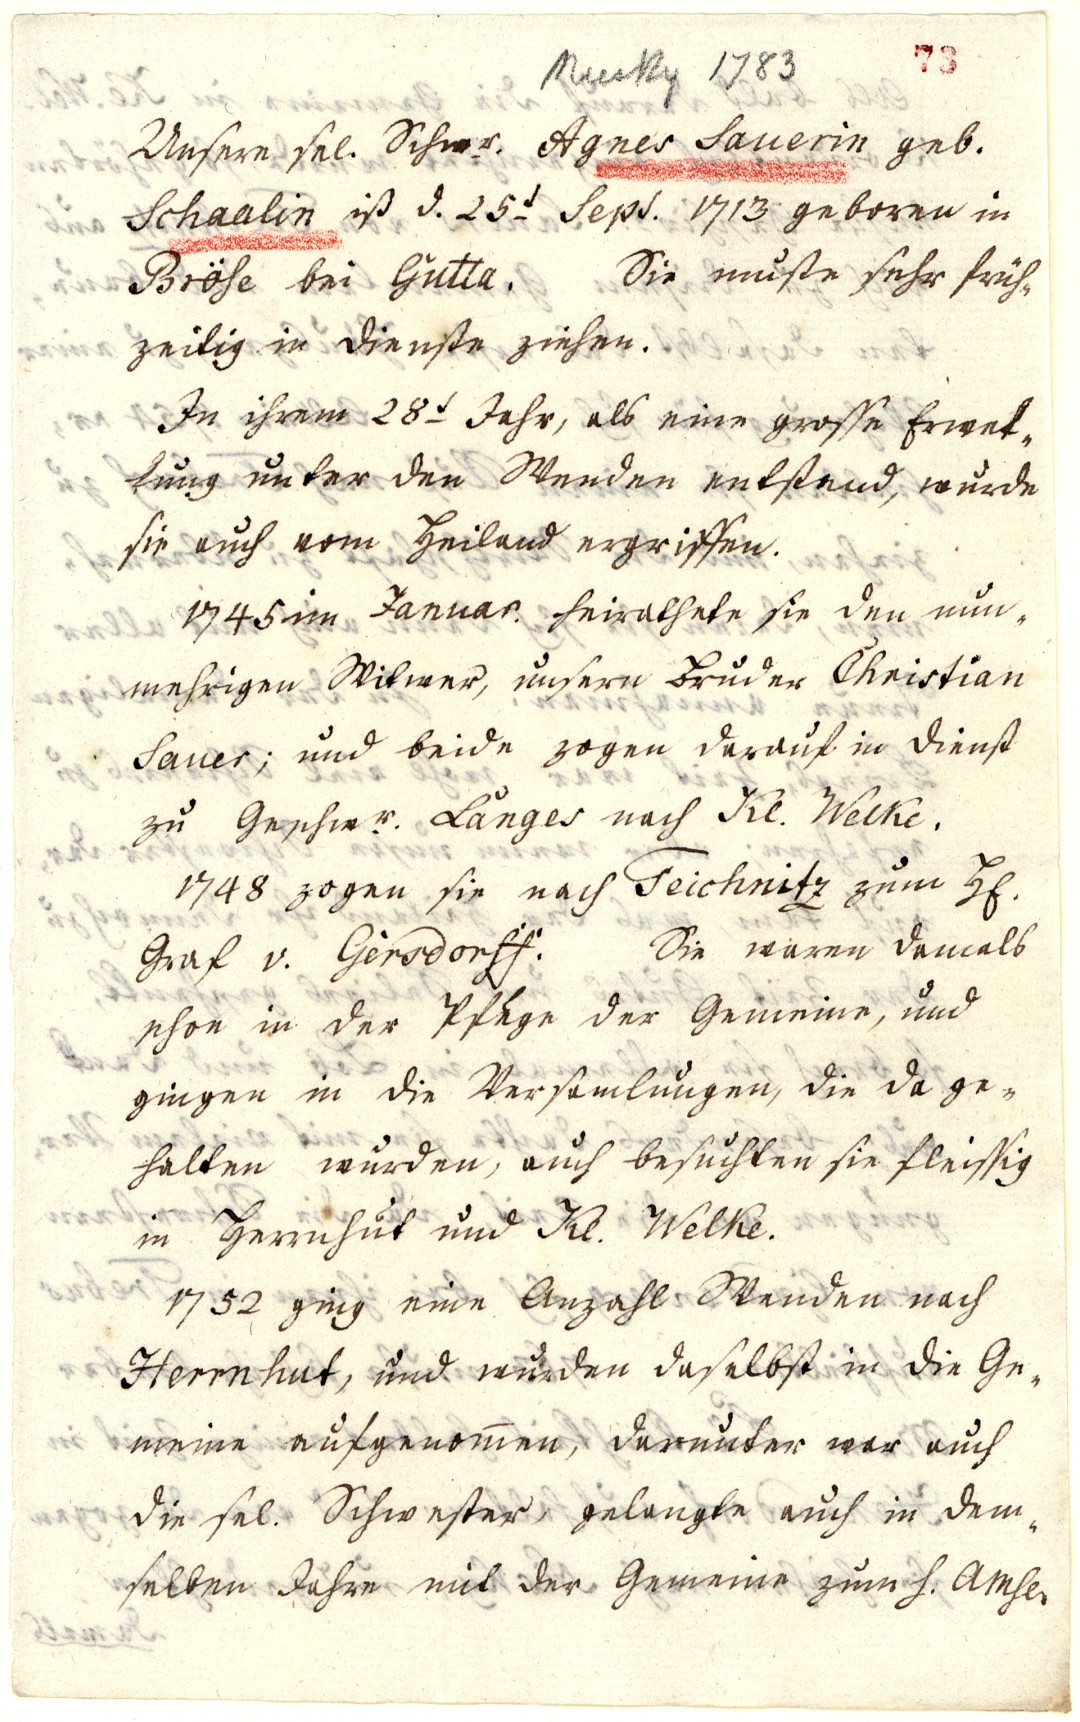 Niesky 1783 73
Unsere sel. Schwr. Agnes Sauerin geb.
Schaalin ist d. 25t Sept. 1713 geboren in
Bröse bei Gutta. Sie muste sehr früh-
zeitig in Dienste ziehen.
In ihrem 28t Jahr, als eine grosse Erwek-
kung unter den Wenden entstand, wurde
sie auch vom Heiland ergriffen.
1745 im Januar. heirathete sie den nun-
mehrigen Witwer, unsern Bruder Christian
Sauer; und beide zogen darauf in Dienst
zu Geschwr. Langes nach Kl. Welke.
1748 zogen sie nach Teichnitz zum H.
Graf v. Gersdorff. Sie waren damals
schon in der Pflege der Gemeine, und
gingen in die Versamlungen, die da ge-
halten wurden, auch besuchten sie fleissig
in Herrnhut und Kl. Welke.
1752 ging eine Anzahl Wenden nach
Herrnhut, und wurden daselbst in die Ge-
meine aufgenom̅en, darunter war auch
die sel. Schwester, gelangte auch in dem-
selben Jahre mit der Gemeine zum h. Abml.